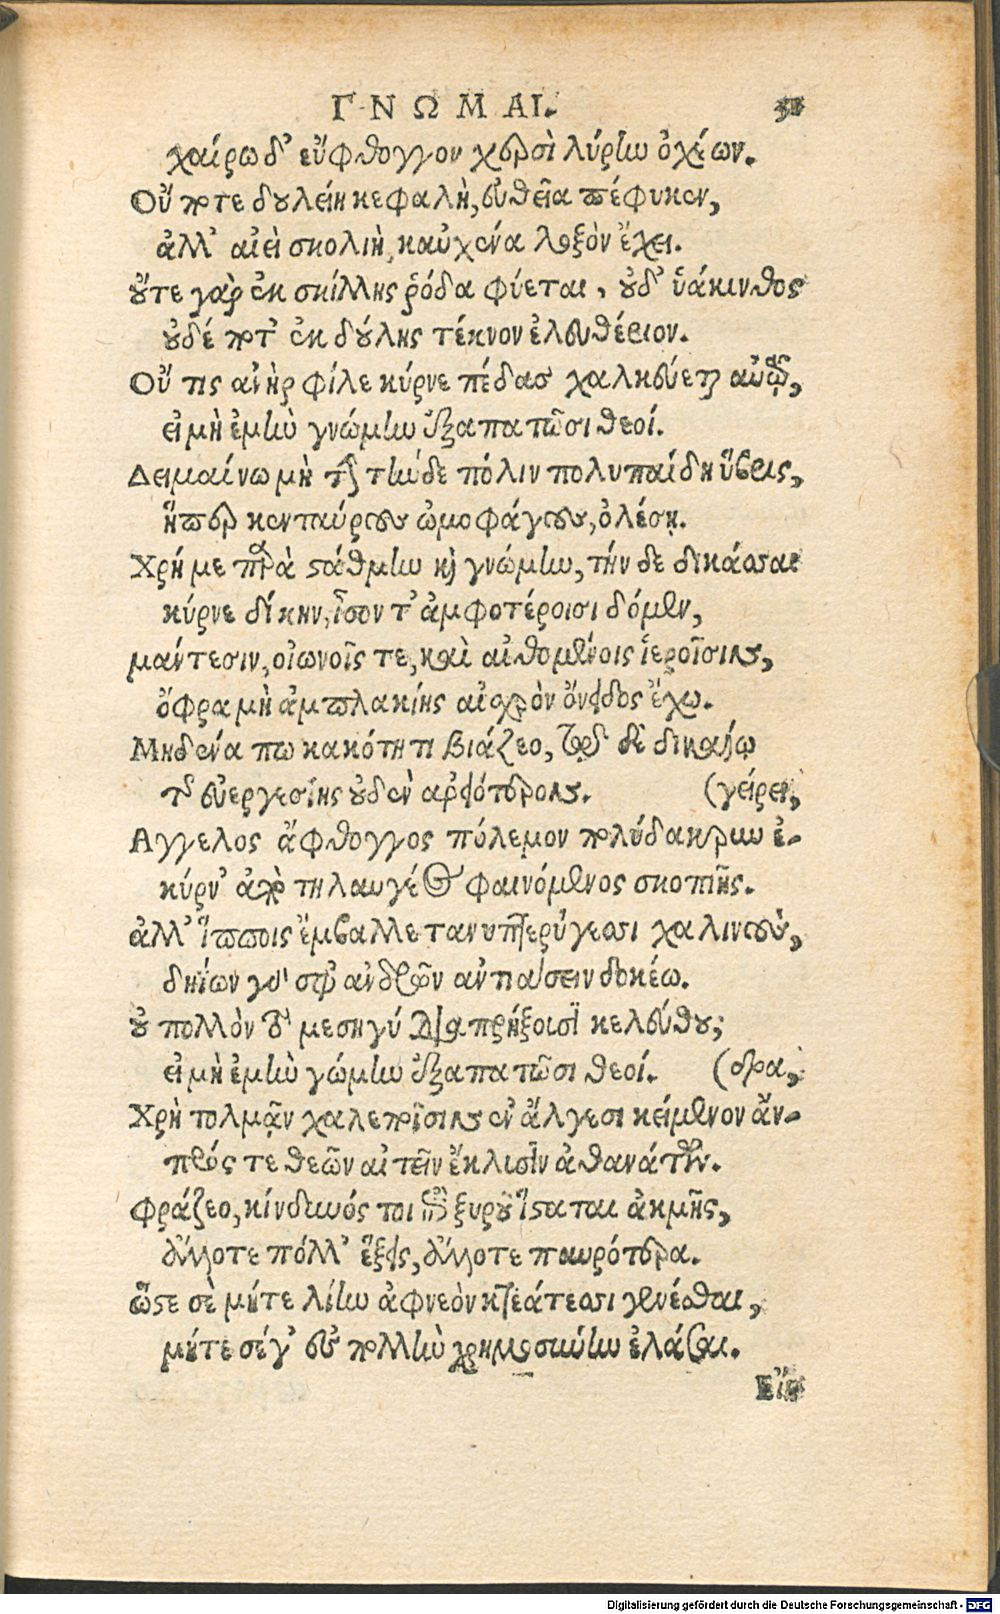 ΓΝΩΜΑΙ. 31
χαίρω δ' εὔφθογγον χερσὶ λύρην ὀχέων.
Οὔ ποτε δουλείη κεφαλὴ, εὐθεῖα πέφυκεν,
ἀλλ' αἰεὶ σκολιὴ, καὐχένα λοξὸν ἔχει.
οὔτε γὰρ ἐκ σκίλλης ῥόδα φύεται, οὐδ' ὑάκινθος
οὐδέ ποτ' ἐκ δούλης τέκνον ἐλευθέριον.
Οὔ τις ἀνὴρ φίλε κύρνε πέδας χαλκεύεται αὑτῷ,
εἰ μὴ ἐμὴν γνώμην ἐξαπατῶσι θεοί.
Δειμαίνω μὴ τὴν τήνδε πόλιν πολυπαίδη ὕβρις,
ἥπερ κενταύρους ὠμοφάγους, ὀλέσῃ.
Χρή με παρὰ στάθμην καὶ γνώμην, τήν δε δικάσαι
κύρνε δίκην, ἶσον τ' ἀμφοτέροισι δόμεν,
μάντεσιν, οἰωνοῖς τε, καὶ αἰθομένοις ἱεροῖσιν,
ὄφρα μὴ ἀμπλακίης αἰσχρὸν ὄνειδος ἔχω.
Μηδένα πω κακότητι βιάζεο, τῷ δὲ δικαίῳ
τῆς εὐεργεσίης οὐδὲν ἀρειότερον. (γείρει,
Αγγελος ἄφθογγος πόλεμον πολύδακρυν ἐ-
κύρν' ἀπὸ τηλαυγέος φαινόμενος σκοπιῆς.
ἀλλ' ἵπποις ἔμβαλλε τανυπτερύγεσσι χαλινοὺς,
δηΐων γάρ σφ' ἀνδρῶν ἀντιάσειν δοκέω.
οὐ πολλὸν τὸ μεσηγύ διαπρήξοισι κελεύθου;
εἰ μὴ ἐμὴν γώμην ἐξαπατῶσι θεοί. (δρα,
Χρὴ τολμᾷν χαλεποῖσιν ἐν ἄλγεσι κείμενον ἄν-
πρός τε θεῶν αἰτεῖν ἔκλισιν ἀθανάτων.
Φράζεο, κίνδυνός τοι ἐπὶ ξυροῦ ἵσταται ἀκμῆς,
ἄλλοτε πόλλ' ἕξεις, ἄλλοτε παυρότερα.
ὥστε σὲ μήτε λίην ἀφνεὸν κτεάτεσσι γενέσθαι,
μήτε σέ γ' ἐς πολλὴν χρημοσύνην ἐλάσαι.
Εἴη